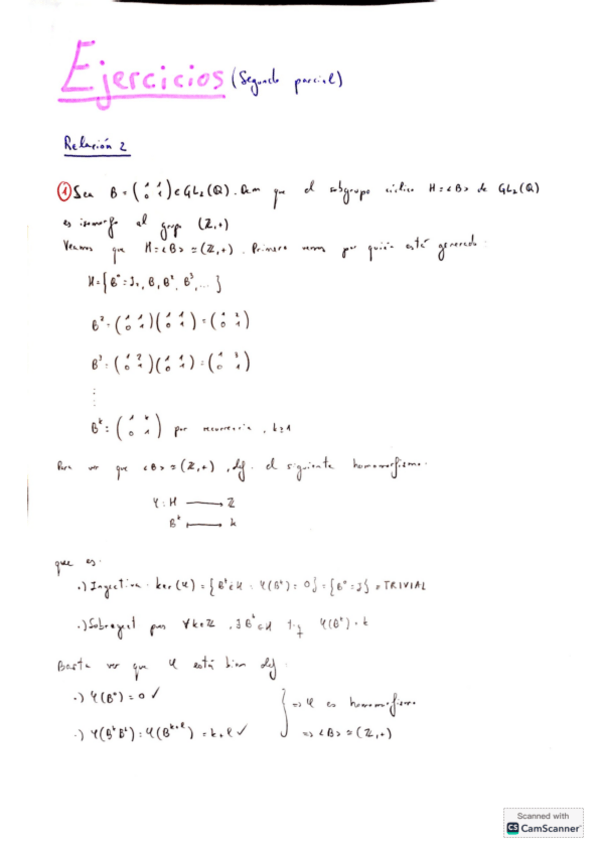 Ejercicios (Segundo parcial)
Relación 2
① Sea B = (1 1; 0 1) ∈ GL₂(Q). Dem que el subgrupo cíclico H = <B> de GL₂(Q)
es isomorfo al grupo (Z,+)
Veamos que H = <B> ≅ (Z,+). Primero vemos por quién está generado:
H = {B⁰ = I₂, B, B², B³, ...}
B² = (1 1; 0 1)(1 1; 0 1) = (1 2; 0 1)
B³ = (1 2; 0 1)(1 1; 0 1) = (1 3; 0 1)
⋮
Bᵏ = (1 k; 0 1) por recurrencia, k≥1
Para ver que <B> ≅ (Z,+), def. el siguiente homomorfismo.
φ: H ⟶ Z
Bᵏ ⟼ k
que es:
·) Inyectiva: ker(φ) = {Bᵏ ∈ H : φ(Bᵏ) = 0} = {B⁰ = I} = TRIVIAL
·) Sobreyect pues ∀k∈Z, ∃ Bᵏ ∈ H tq φ(Bᵏ) = k
Basta ver que φ está bien def:
·) φ(B⁰) = 0 ✓
⇒ φ es homomorfismo
·) φ(BᵏBˡ) = φ(Bᵏ⁺ˡ) = k+l ✓
⇒ <B> ≅ (Z,+)
Scanned with
CS CamScanner